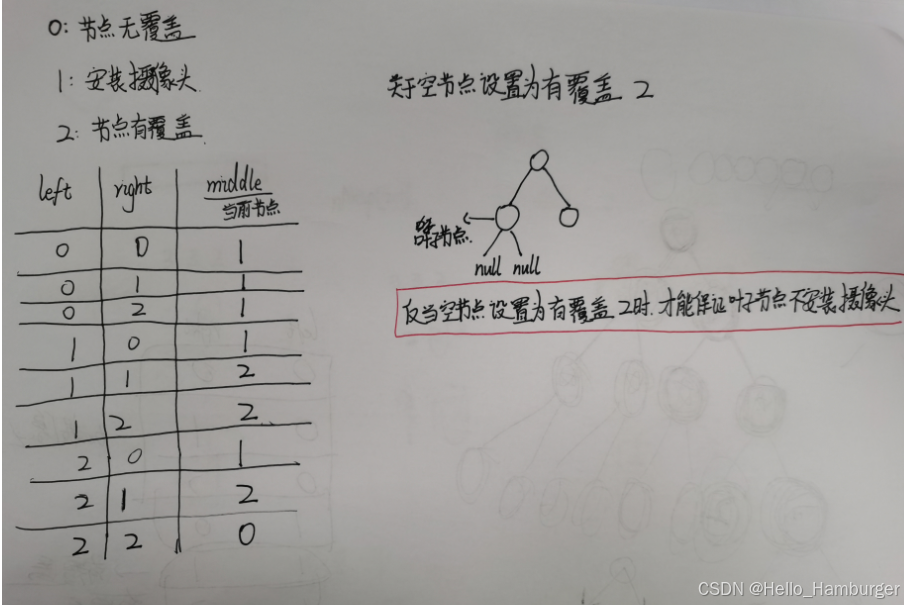 0: 节点无覆盖
1: 安装摄像头
2: 节点有覆盖
关于空节点设置为有覆盖 2
left right middle
当前节点
0 0 1
0 1 1
0 2 1
1 0 1
1 1 2
1 2 2
2 0 1
2 1 2
2 2 0
叶子节点
null null
仅当空节点设置为有覆盖2时.才能保证叶子节点不安装摄像头
CSDN @Hello_Hamburger